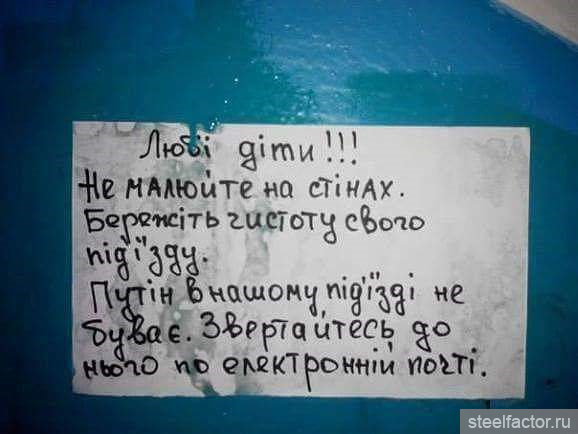 Любі діти !!!
Не малюйте на стінах.
Бережіть чистоту свого
під'їзду.
Путін в нашому під'їзді не
буває. Звертайтесь до
нього по електронній почті.
steelfactor.ru